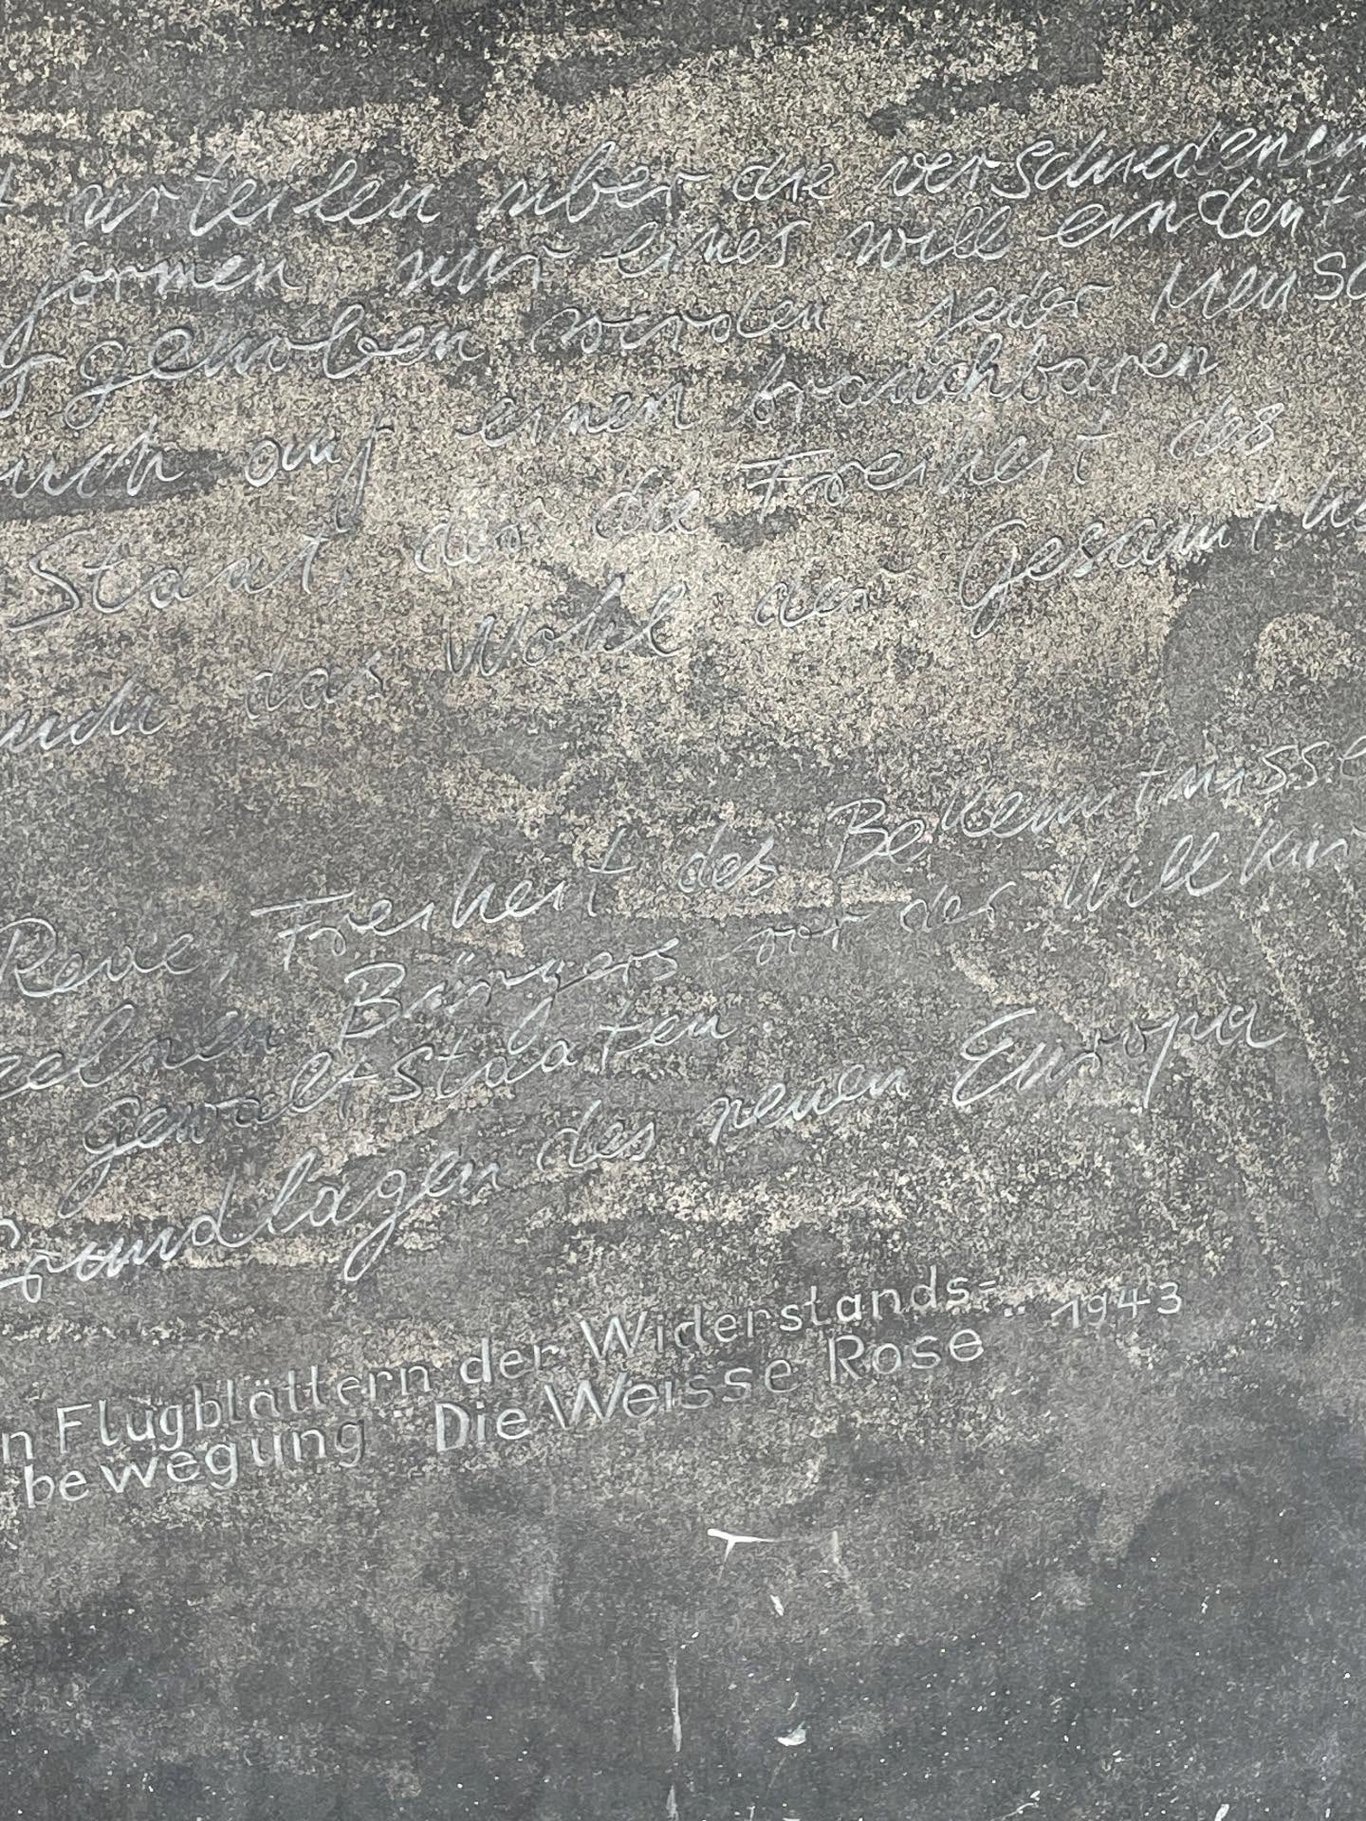 urteilen über die verschiedenen
formen, nur eines will eindeut
g gehoben werden. jeder Mensc
uch auf einen brauchbaren
Staat, der die Freiheit des
auch das Wohl der Gesamthe
Rede, Freiheit des Bekenntnisse
zelnen Bürgers vor der Willkür
gewaltstaaten
Grundlagen des neuen Europa
n Flugblättern der Widerstands=
bewegung "Die Weisse Rose" 1943